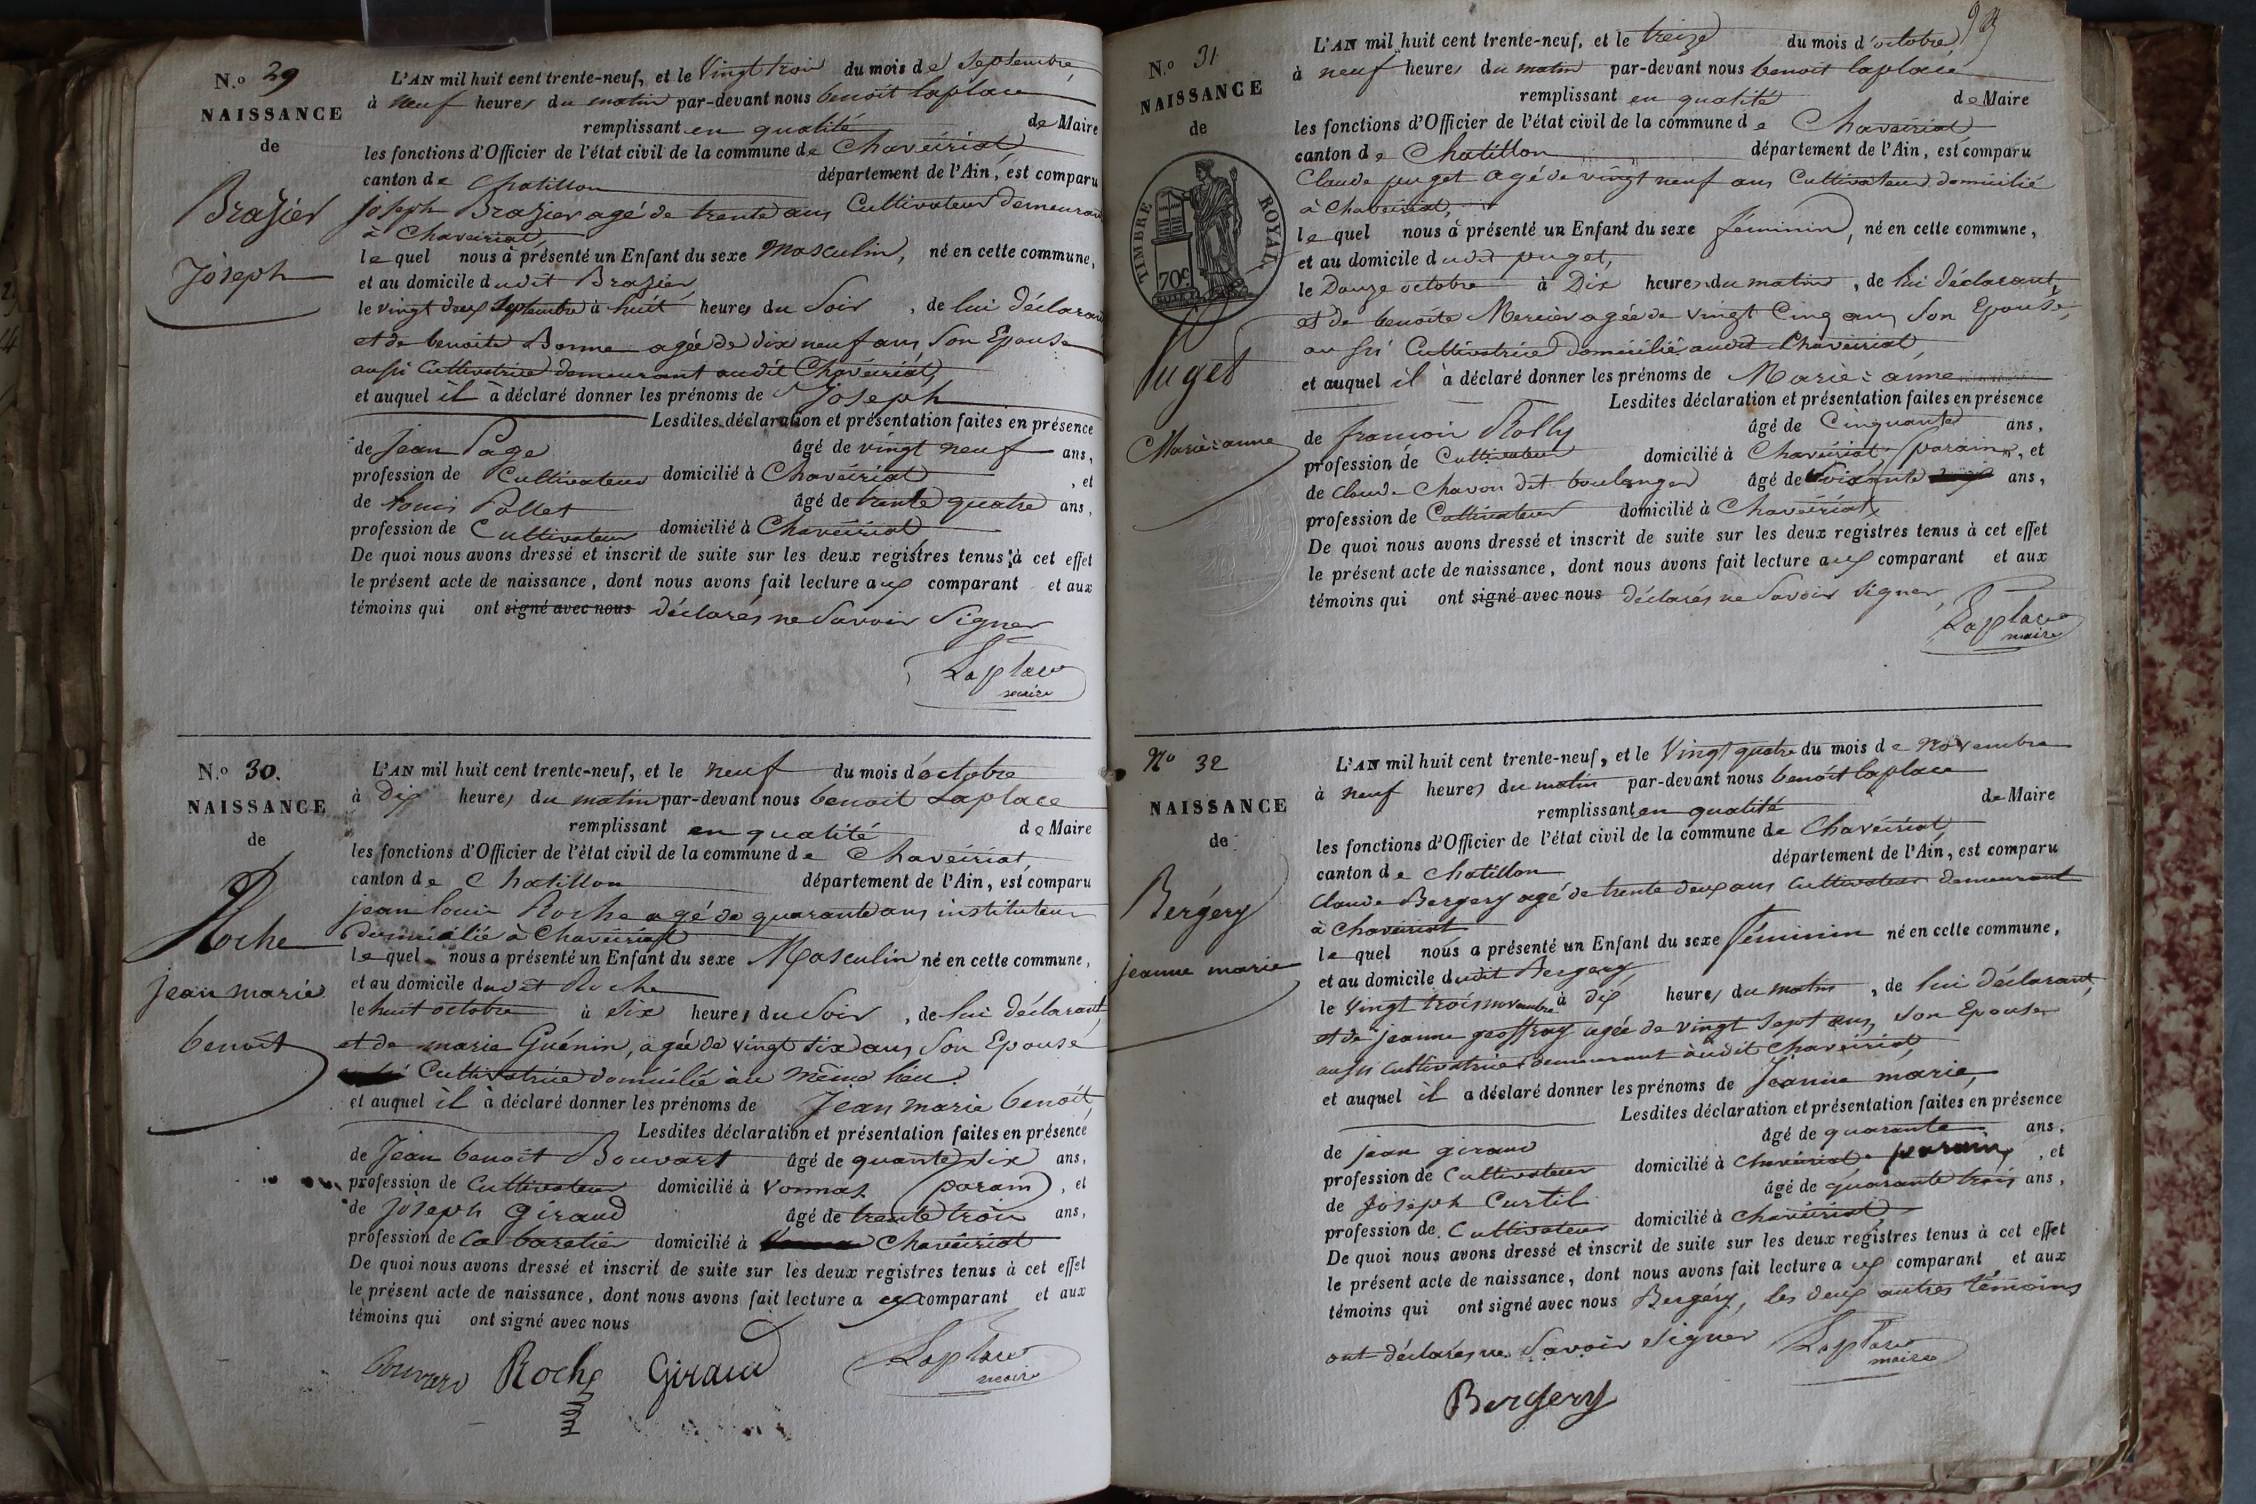 N.o 29
NAISSANCE
de
Brazier
Joseph
L'AN mil huit cent trente-neuf, et le Vingt trois du mois de Septembre,
à neuf heures du matin par-devant nous benoit laplace
remplissant en qualité de Maire
les fonctions d'Officier de l'état civil de la commune de Chaveiriat,
canton de Chatillon département de l'Ain, est comparu
Joseph Brazier agé de trente ans Cultivateur demeurant
à Chaveiriat,
lequel nous à présenté un Enfant du sexe Masculin, né en cette commune,
et au domicile dudit Brazier
le vingt deux Septembre à huit heures du Soir, de lui déclarant
et de benoite Bonne agée de dix neuf ans Son Epouse
aussi Cultivatrice demeurant audit Chaveiriat,
et auquel il à déclaré donner les prénoms de Joseph
Lesdites déclaration et présentation faites en présence
de Jean Page âgé de vingt neuf ans,
profession de Cultivateur domicilié à Chaveiriat, et
de Louis Pollet âgé de trente quatre ans,
profession de Cultivateur domicilié à Chaveiriat
De quoi nous avons dressé et inscrit de suite sur les deux registres tenus à cet effet
le présent acte de naissance, dont nous avons fait lecture aux comparant et aux
témoins qui ont signé avec nous déclarés ne Savoir Signer
Laplace
maire
N.o 30.
NAISSANCE
de
Roche
jean marie
benoit
L'AN mil huit cent trente-neuf, et le neuf du mois d'octobre
à Dix heures du matin par-devant nous benoit Laplace
remplissant en qualité de Maire
les fonctions d'Officier de l'état civil de la commune de Chaveiriat,
canton de Chatillon département de l'Ain, est comparu
jean louis Roche agé de quarante ans instituteur
domicilié à Chaveiriat
lequel nous a présenté un Enfant du sexe Masculin né en cette commune,
et au domicile dudit Roche
le huit octobre à Six heures du Soir, de lui déclarant
et de marie Guénin, agée de vingt six ans Son Epouse
Cultivatrice domicilié au même lieu.
et auquel il à déclaré donner les prénoms de Jean marie benoit,
Lesdites déclaration et présentation faites en présence
de Jean benoit Bouvart âgé de quante six ans,
profession de Cultivateur domicilié à Vonnas (parain), et
de Joseph Giraud âgé de trente trois ans,
profession de Cabaretier domicilié à Chaveiriat
De quoi nous avons dressé et inscrit de suite sur les deux registres tenus à cet effet
le présent acte de naissance, dont nous avons fait lecture a ux comparant et aux
témoins qui ont signé avec nous
bouvard Roche Giraud Laplace
maire
N.o 31
NAISSANCE
de
TIMBRE ROYAL
70c
Puget
Marie=anne
L'AN mil huit cent trente-neuf, et le treize du mois d'octobre,
à neuf heures du matin par-devant nous benoit laplace
remplissant en qualité de Maire
les fonctions d'Officier de l'état civil de la commune de Chaveiriat,
canton de Chatillon département de l'Ain, est comparu
Claude puget agé de vingt neuf ans Cultivateur domicilié
à Chaveiriat,
lequel nous à présenté un Enfant du sexe féminin, né en cette commune,
et au domicile dudit puget,
le Douze octobre à Dix heures du matin, de lui déclarant,
et de benoite Mercier agée de vingt Cinq ans Son Epouse,
aussi Cultivatrice domiciliés audit Chaveiriat,
et auquel il à déclaré donner les prénoms de Marie=anne
Lesdites déclaration et présentation faites en présence
de francois Rolly âgé de Cinquante ans,
profession de Cultivateur domicilié à Chaveiriat, parain, et
de Claude Chavon dit boulanger âgé de Soixante ans,
profession de Cultivateur domicilié à Chaveiriat,
De quoi nous avons dressé et inscrit de suite sur les deux registres tenus à cet effet
le présent acte de naissance, dont nous avons fait lecture aux comparant et aux
témoins qui ont signé avec nous déclarés ne Savoir Signer,
Laplace
maire
No 32
NAISSANCE
de
Bergery
jeanne marie
L'AN mil huit cent trente-neuf, et le Vingt quatre du mois de novembre
à neuf heures du matin par-devant nous benoit laplace
remplissant en qualité de Maire
les fonctions d'Officier de l'état civil de la commune de Chaveiriat,
canton de Chatillon département de l'Ain, est comparu
Claude Bergery agé de trente deux ans Cultivateur demeurant
à Chaveiriat
lequel nous a présenté un Enfant du sexe féminin né en cette commune,
et au domicile dudit Bergery,
le Vingt trois novembre à dix heures du matin, de lui déclarant,
et de jeanne geoffray agée de vingt Sept ans, Son Epouse
aussi cultivatrice demeurant audit Chaveiriat,
et auquel il a déclaré donner les prénoms de Jeanne marie,
Lesdites déclaration et présentation faites en présence
de jean giraud âgé de quarante ans,
profession de Cultivateur domicilié à Chaveiriat parain, et
de Joseph Curtil âgé de quarante trois ans,
profession de Cultivateur domicilié à Chaveiriat,
De quoi nous avons dressé et inscrit de suite sur les deux registres tenus à cet effet
le présent acte de naissance, dont nous avons fait lecture a ux comparant et aux
témoins qui ont signé avec nous Bergery, les deux autres témoins
ont déclarés ne Savoir Signer Laplace
maire
Bergery